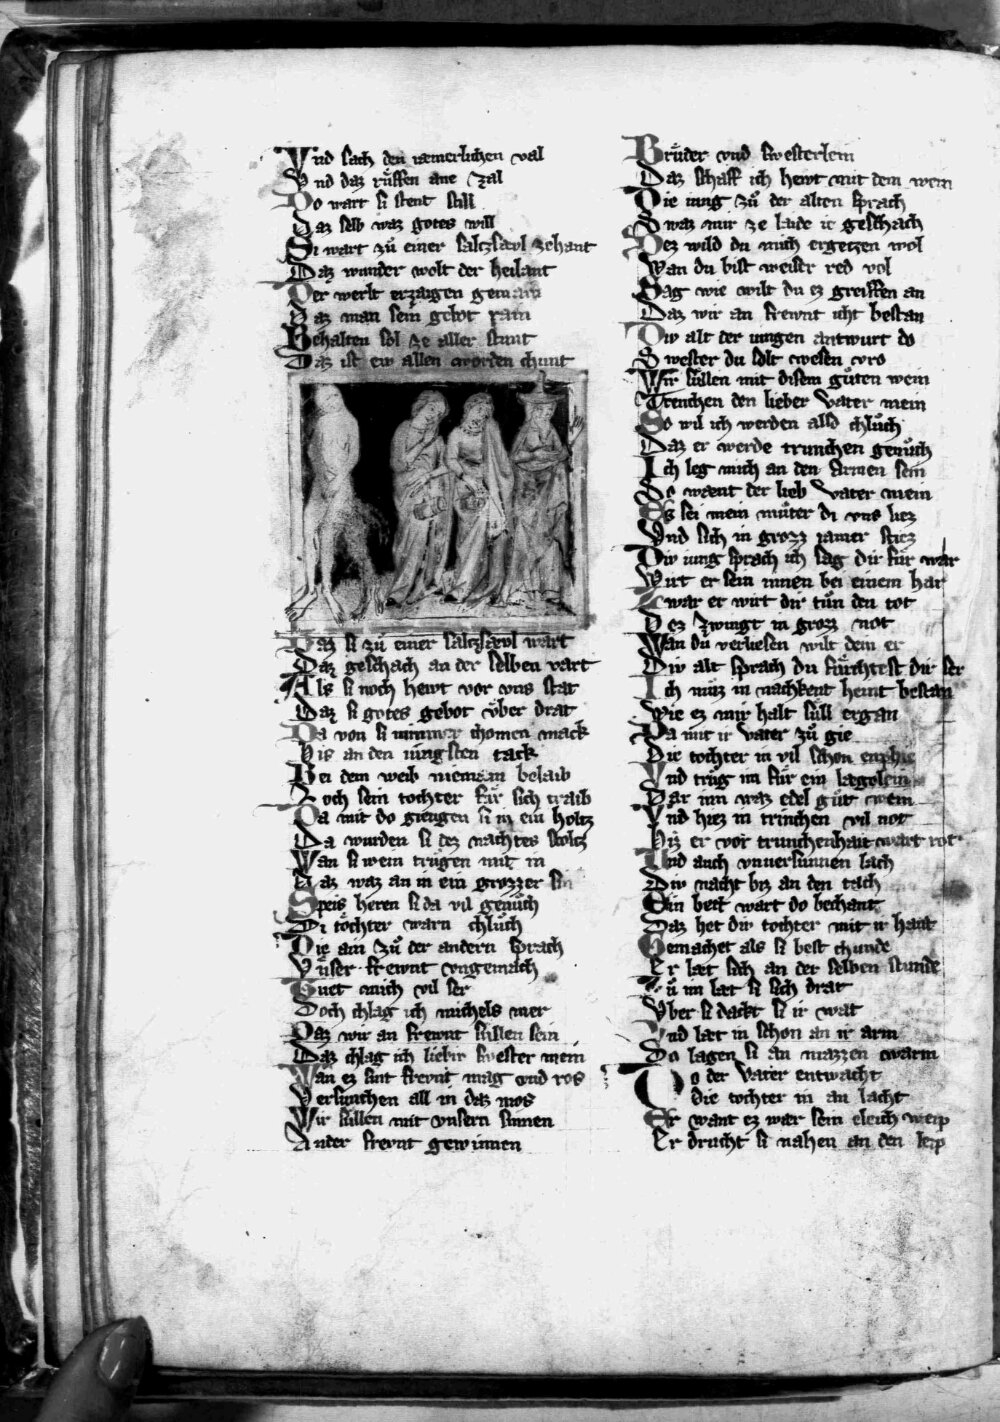 Vnd sach den iæmerlichen val
Vnd daz rüffen ane zal
Do wart si stent still
Daz selb waz gotes will
Si wart zů einer saltzsæwl zehant
Daz wunder wolt der heilant
Der werlt erzaigen gemain
Daz man sein gebot rain
Behalten sol ze aller stunt
Daz ist ew allen worden chunt
Daz si zů einer saltzsæwl wart
Daz geschach an der selben vart
Als si noch hewt vor vns stat
Daz si gotes gebot über drat
Da von si nimmer chomen mack
Biz an den iüngsten tack
Bei dem weib nieman belaib
Loth sein tochter für sich traib
Da mit do giengen si in ein holtz
Da wurden si dez nachtes stoltz
Wan si wein trügen mit in
Daz waz an in ein grozzer sin
Speis heten si da vil genůch
Di töchter warn chlůch
Die ain zů der andern sprach
Vnser frewnt vngemach
Müet mich vil ser
Doch chlag ich michels mer
Daz wir an frewnt süllen sein
Daz chlag ich liebir swester mein
Wan ez sint frewnt mag vnd ros
Versunchen all in daz mos
Wir süllen mit vnsern sinnen
Ander frewnt gewinnen
Brüder vnd swesterlein
Daz schaff ich hewt mit dem wein
Die iung zů der alten sprach
Swaz mir ze laide ie geschach
Dez wild du mich ergetzen wol
Wan du bist weister red vol
Sag wie wilt du ez greiffen an
Daz wir an frewnt iht bestan
Diw alt der iungen antwurt do
Swester du solt wesen vro
Wir süllen mit disem gůten wein
Trenchen den lieber vater mein
So wil ich werden also chlůch
Daz er werde trunchen genůch
Ich leg mich an den armen sein
So wænt der lieb vater mein
Ez sei mein můter di vns liez
Vnd sich in grozz iamer stiez
Diw iung sprach ich sag dir für war
Wirt er sein innen bei einem har
Zwar er wirt dir tůn den tot
Dez zwingt in grozz not
Wan du verliesen wilt dem er
Diw alt sprach du fürchtest dir ser
Ich můz in nachkent heint bestan
Wie ez mir halt süll ergan
Da mit ir vater zů gie
Die tochter in vil schon enphie
Vnd trůg im für ein lægelein
Dar inn waz edel gůt wein
Vnd hiez in trinchen vil not
Biz er vor trunchenhait wart rot
Vnd auch vnuersunnen lach
Diw nacht biz an den tach
Ein bett wart do bechant
Daz het diw tochter mit ir hant
Gemachet als si best chunde
Er læt sich an der selben stunde
Zů im læt si sich drat
Vber si dackt si ir wat
Vnd læt in schon an ir arm
Do lagen si an mazzen warm
Do der vater entwacht
Die tochter in an lacht
Er want ez wær sein eleich weip
Er drucht si nahen an den leip